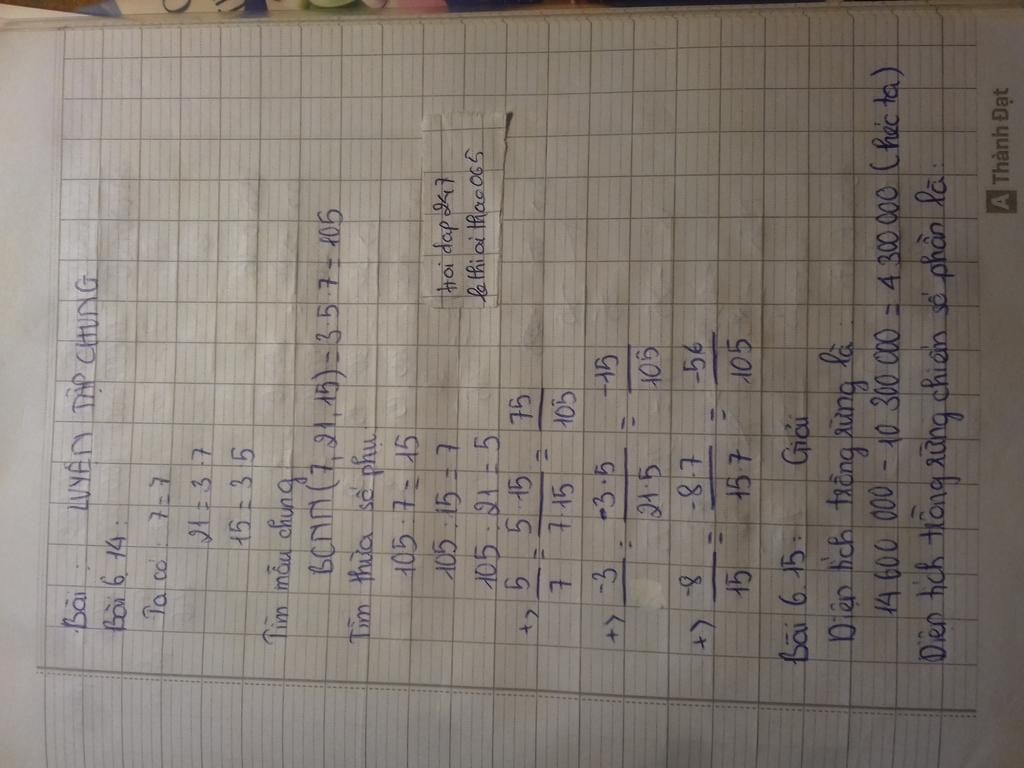 Bài : LUYỆN TẬP CHUNG
Bài 6.14:
Ta có : 7 = 7
21 = 3 . 7
15 = 3 . 5
Tìm mẫu chung
BCNN (7, 21, 15) = 3 . 5 . 7 = 105
Tìm thừa số phụ
105 : 7 = 15
105 : 15 = 7
105 : 21 = 5
+> 5/7 = 5.15/7.15 = 75/105
+> -3/ = -3.5/21.5 = -15/105
+> -8/15 = -8.7/15.7 = -56/105
Bài 6.15: Giải
Diện tích trồng rừng là
14 600 000 - 10 300 000 = 4 300 000 (héc ta)
Diện tích trồng rừng chiếm số phần là:
Hoi dap 247
lethiaithao065
A Thành Đạt